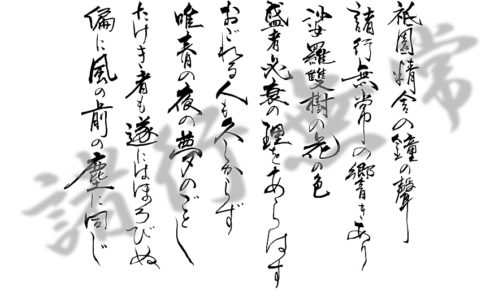 祇園精舎の鐘の聲
諸行無常の響きあり
娑羅雙樹の花の色
盛者必衰の理をあらはす
おごれる人も久しからず
唯春の夜の夢のごとし
たけき者も遂にはほろびぬ
偏に風の前の塵に同じ
諸行無常